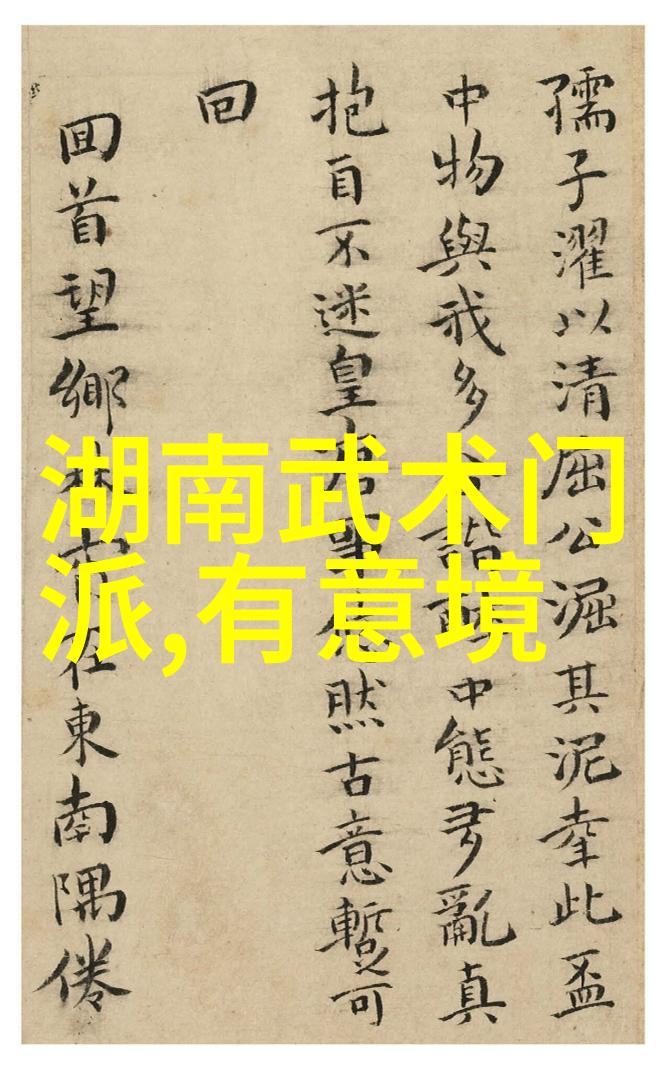 孺子濯以清屈公淈其泥幸此盃
中物與我多諧醉中態多亂真
抱自不迷皇然古意暫可
回
回首望鄉林在東南隅倦
湖南武术门
派,有意境